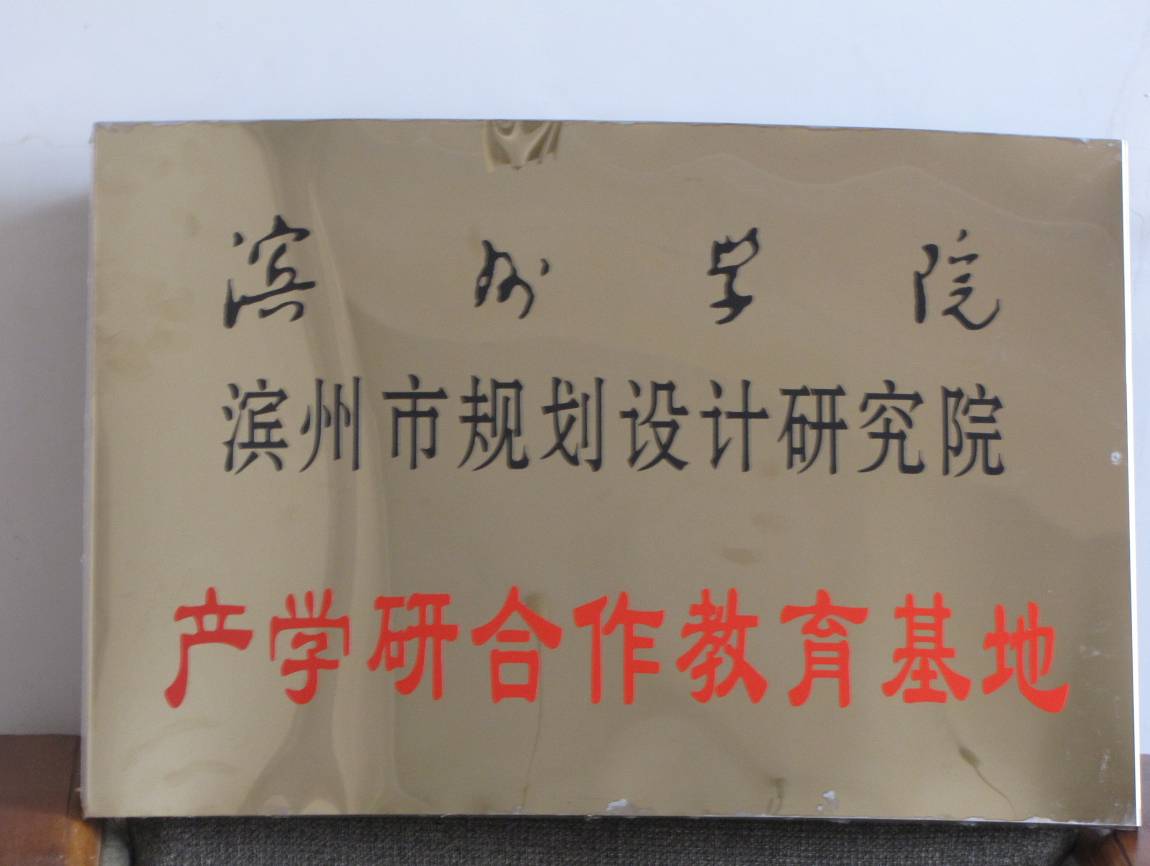 滨州学院
滨州市规划设计研究院
产学研合作教育基地